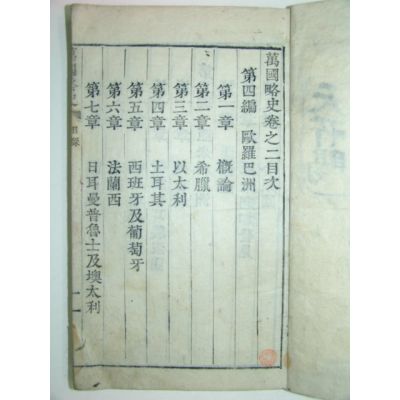 萬國略史卷之二目次
第四編 歐羅巴洲
第一章 槪論
第二章 希臘
第三章 以太利
第四章 土耳其
第五章 西班牙及葡萄牙
第六章 法蘭西
第七章 日耳曼普魯士及墺太利